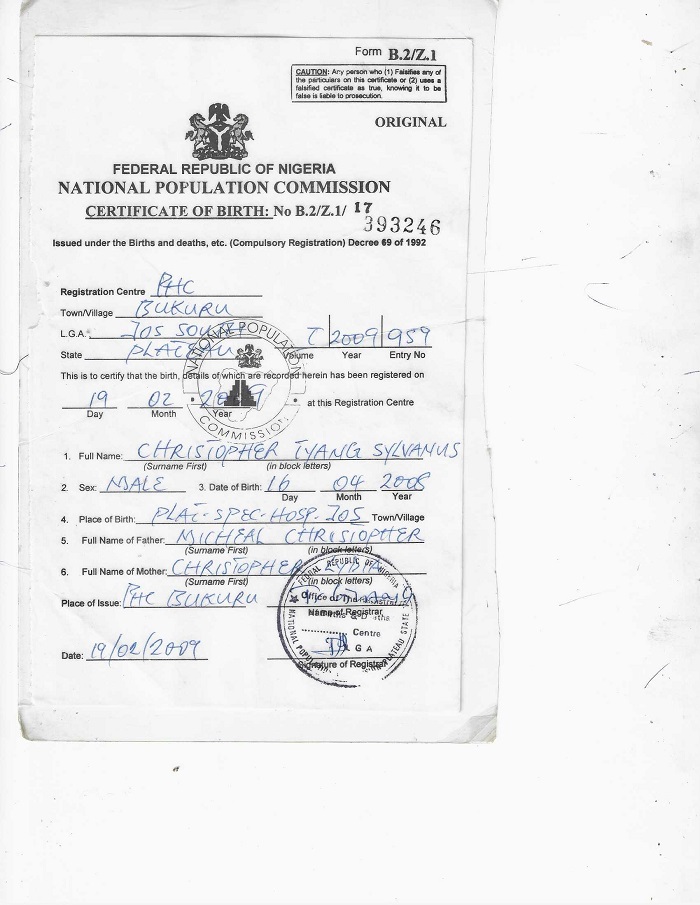 Form B.2/Z.1
CAUTION: Any person who (1) Falsifies any of
the particulars on this certificate or (2) uses a
falsified certificate as true, knowing it to be
false is liable to prosecution.
ORIGINAL
FEDERAL REPUBLIC OF NIGERIA
NATIONAL POPULATION COMMISSION
CERTIFICATE OF BIRTH: No B.2/Z.1/ 17
393246
Issued under the Births and deaths, etc. (Compulsory Registration) Decree 69 of 1992
Registration Centre PHC
Town/Village BUKURU
L.G.A. JOS SOUTH
State PLATEAU
2009 959
Volume Year Entry No
This is to certify that the birth, details of which are recorded herein has been registered on
19 02 2009 at this Registration Centre
Day Month Year
NATIONAL POPULATION
COMMISSION
1. Full Name: CHRISTOPHER IYANG SYLVANUS
(Surname First) (in block letters)
2. Sex: MALE 3. Date of Birth: 16 04 2008
Day Month Year
4. Place of Birth: PLAT-SPEC-HOSP-JOS Town/Village
5. Full Name of Father: MICHEAL CHRISTOPHER
(Surname First) (in block letters)
6. Full Name of Mother: CHRISTOPHER LYDIA
(Surname First) (in block letters)
Place of Issue: PHC BUKURU
Name of Registrar
Centre
L G A
Date: 19/02/2009
Signature of Registrar
FEDERAL REPUBLIC OF NIGERIA